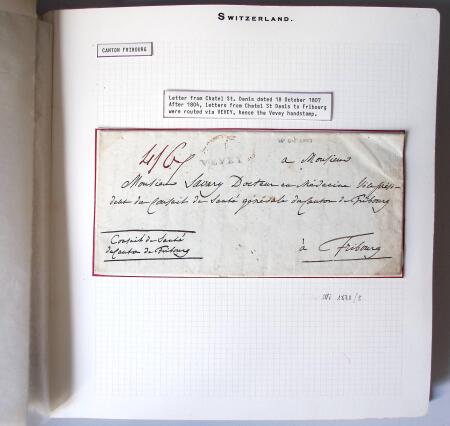 SWITZERLAND.
CANTON FRIBOURG
Letter from Chatel St. Denis dated 18 October 1807
After 1804, letters from Chatel St Denis to Fribourg
were routed via VEVEY, hence the Vevey handstamp.
VEVEY
a Monsieur
Monsieur Savery Docteur en Médecine
du Conseil de Santé générale du Canton de Fribourg
Conseil de Santé
du Canton de Fribourg
à Fribourg